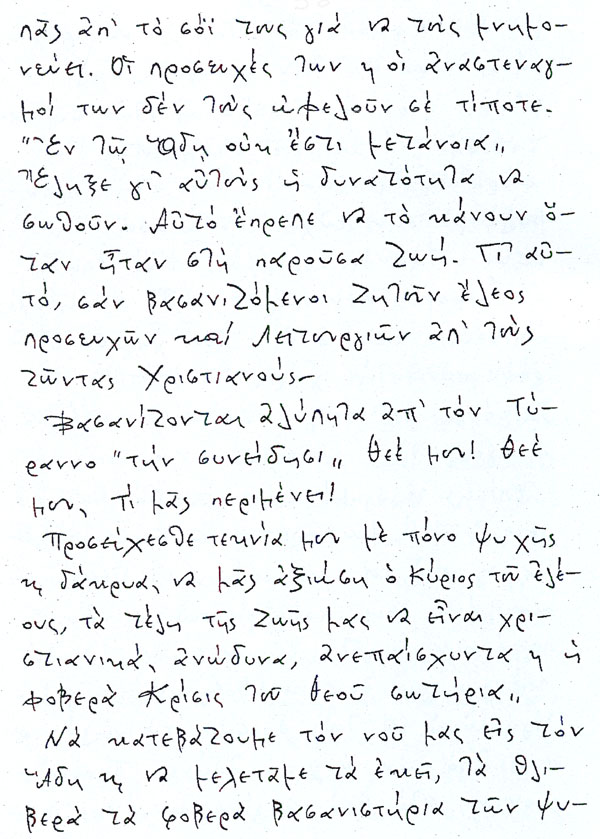 πᾶς ἀπ' τὸ σόϊ τους γιά νά τούς μνημο-
νεύει. Οἱ προσευχές των κ οἱ ἀναστεναγ-
μοί των δέν τούς ὠφελοῦν σέ τίποτε.
"Ἐν τῷ Ἅδῃ οὐκ ἔστι μετάνοια„
Ἔληξε γι' αὐτούς ἡ δυνατότητα νά
σωθοῦν. Αὐτό ἔπρεπε νά τό κάνουν ὅ-
ταν ἦταν στή παροῦσα ζωή. Γι' αὐ-
τό, σάν βασανιζόμενοι ζητοῦν ἔλεος
προσευχῶν καί Λειτουργιῶν ἀπ' τούς
ζῶντας Χριστιανούς—
Βασανίζονται ἀλύπητα ἀπ' τόν Τύ-
ραννο "τήν συνείδησι„ Θεέ μου! Θεέ
μου, τί μᾶς περιμένει!
Προσεύχεσθε τεκνία μου μέ πόνο ψυχῆς
κ δάκρυα, νά μᾶς ἀξιώσῃ ὁ Κύριος τοῦ ἐλέ-
ους, τὰ τέλη τῆς ζωῆς μας νά εἶναι χρι-
στιανικά, ἀνώδυνα, ἀνεπαίσχυντα κ ἡ
φοβερὰ Κρίσις τοῦ Θεοῦ σωτήρια„
Νά κατεβάζουμε τόν νοῦ μας εἰς τόν
Ἅδη κ νά μελετᾶμε τά ἐκεῖ, τά θλι-
βερὰ τὰ φοβερὰ βασανιστήρια τῶν ψυ-